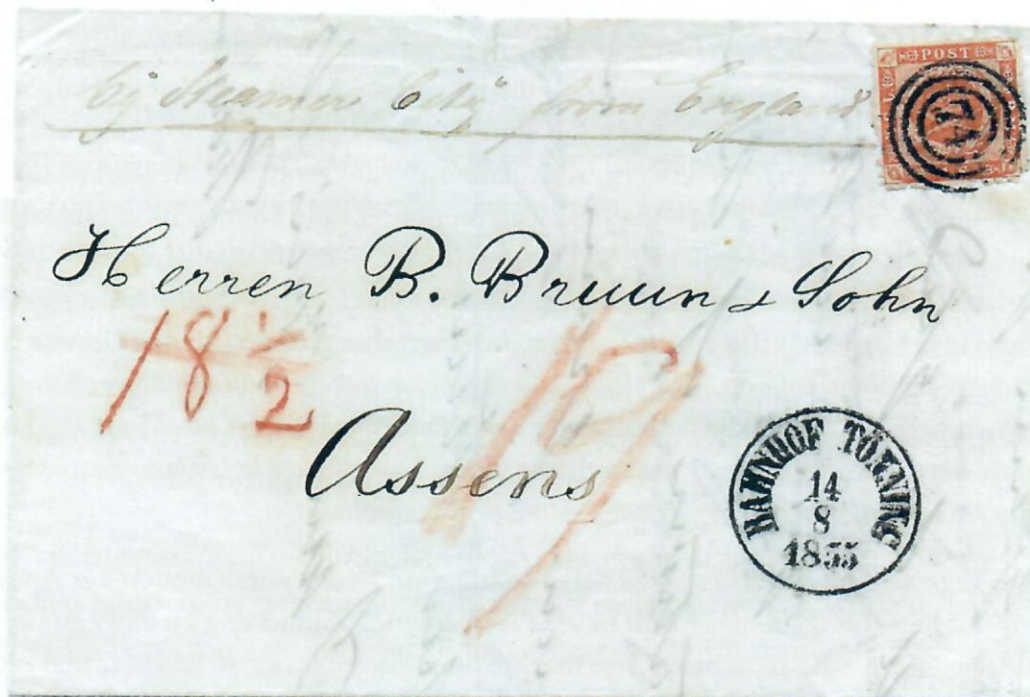 by Steamer City from England
POST
Herren B. Bruun & Sohn
18 1/2
19
Assens
BAHNHOF TÖNNING
14
8
1855